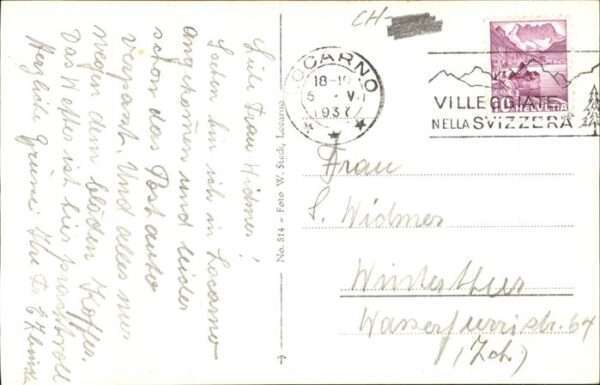 CH-
LOCARNO
18-19
1937
VILLEGGIATE
NELLA SVIZZERA
HELVETIA
Liebe Frau Widmer!
Soeben bin ich in Locarno
angekommen und leider
schon das Postauto
verpasst. Und alles nur
wegen dem blöden Koffer.
Das Wetter ist hier prachtvoll
Herzliche Grüsse Ihr Fr.
No. 814 - Foto W. Steck, Locarno
Frau
L. Widmer
Winterthur
Wasserfurristr. 64
(Zch.)